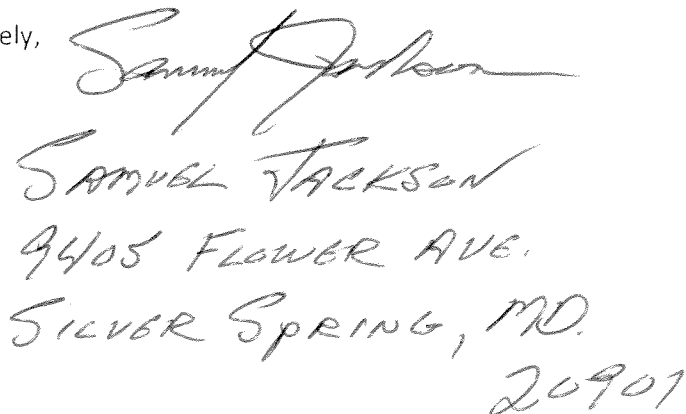 ely,
Sammy Jackson
SAMUEL JACKSON
9405 FLOWER AVE.
SILVER SPRING, MD.
20901